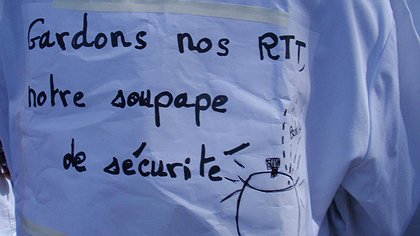 Gardons nos RTT,
notre soupape
de sécurité